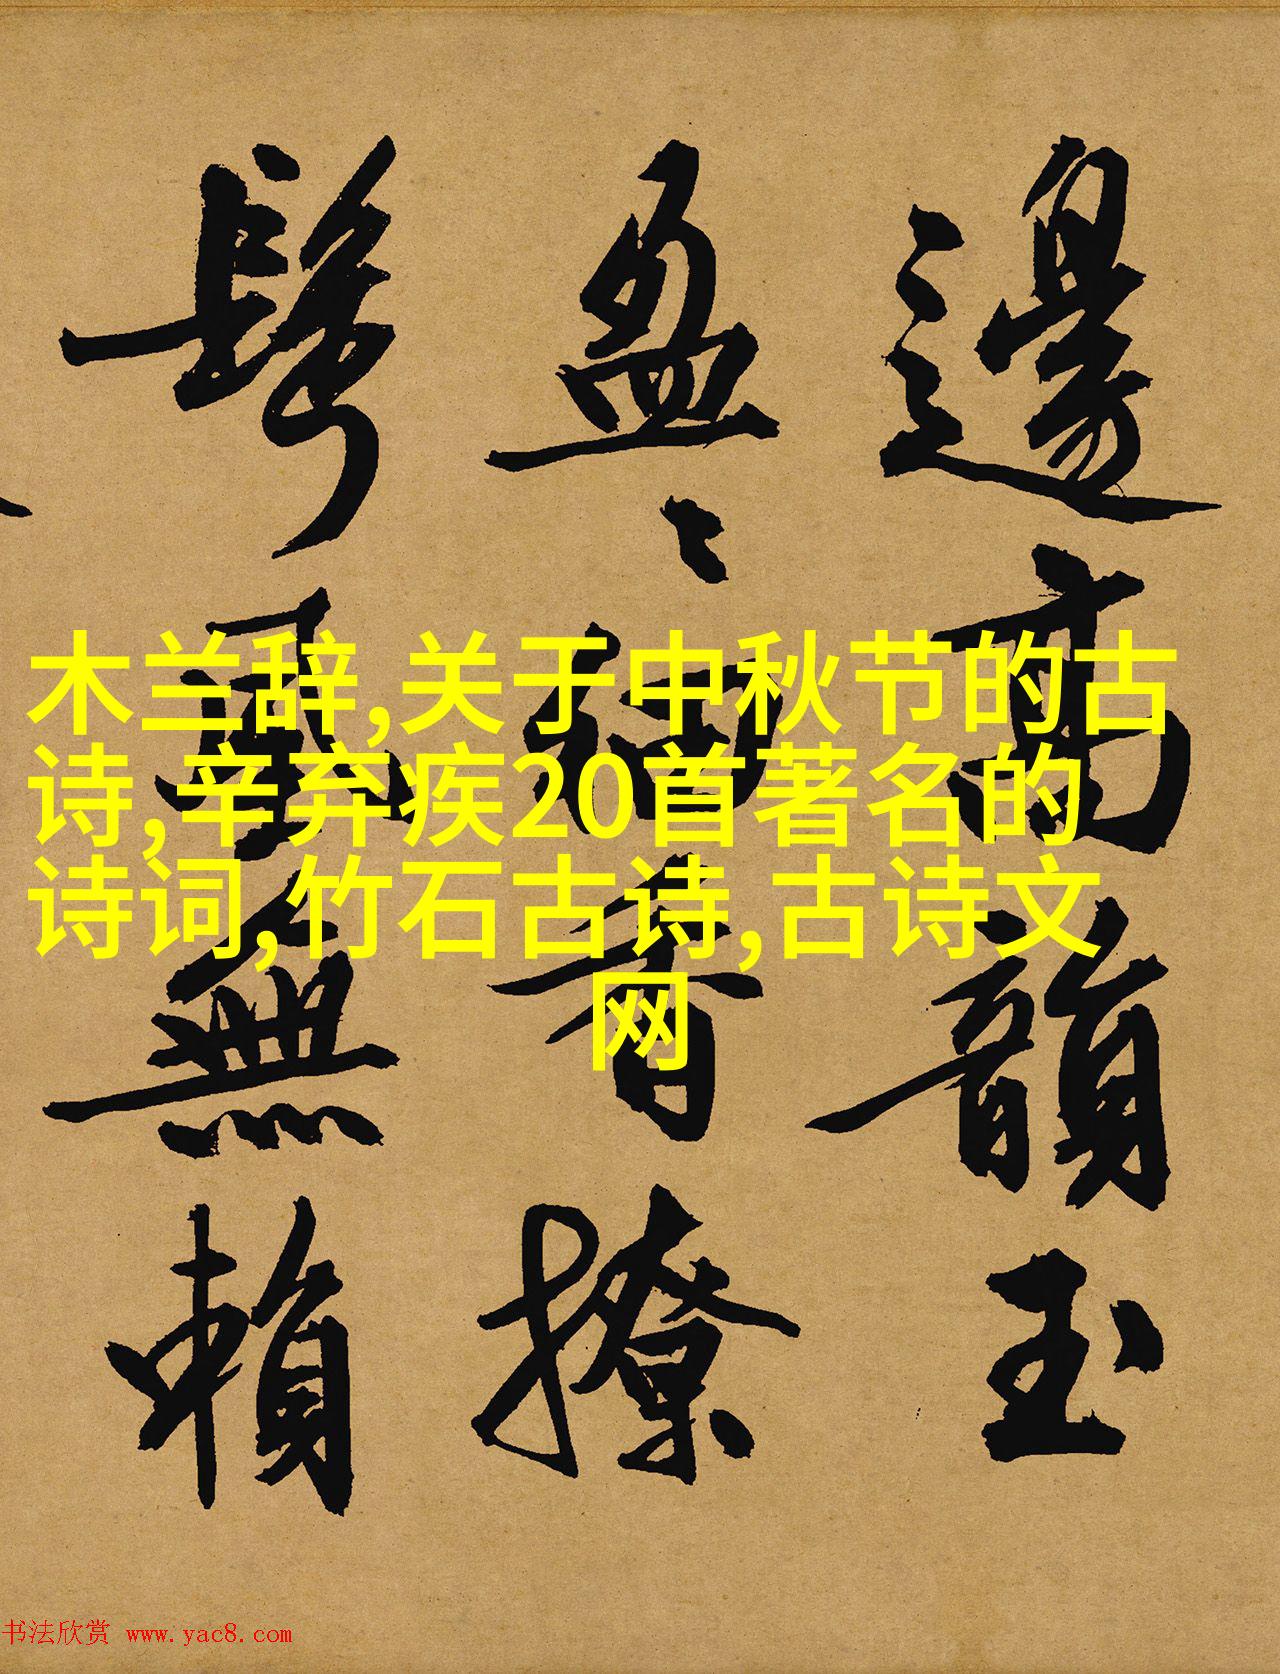 邊高韻玉
盈〻細香撩
鬢風無賴
木兰辞,关于中秋节的古
诗,辛弃疾20首著名的
诗词,竹石古诗,古诗文
网
书法欣赏 www.yac8.com